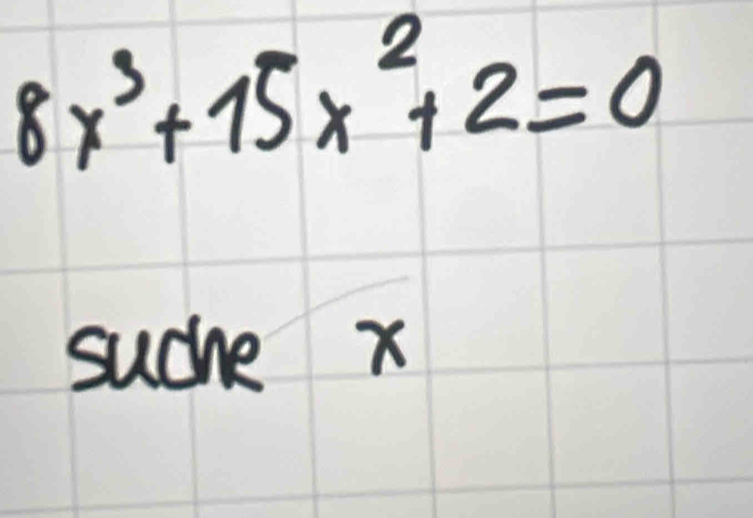 8x³+15x²+2=0
suche x